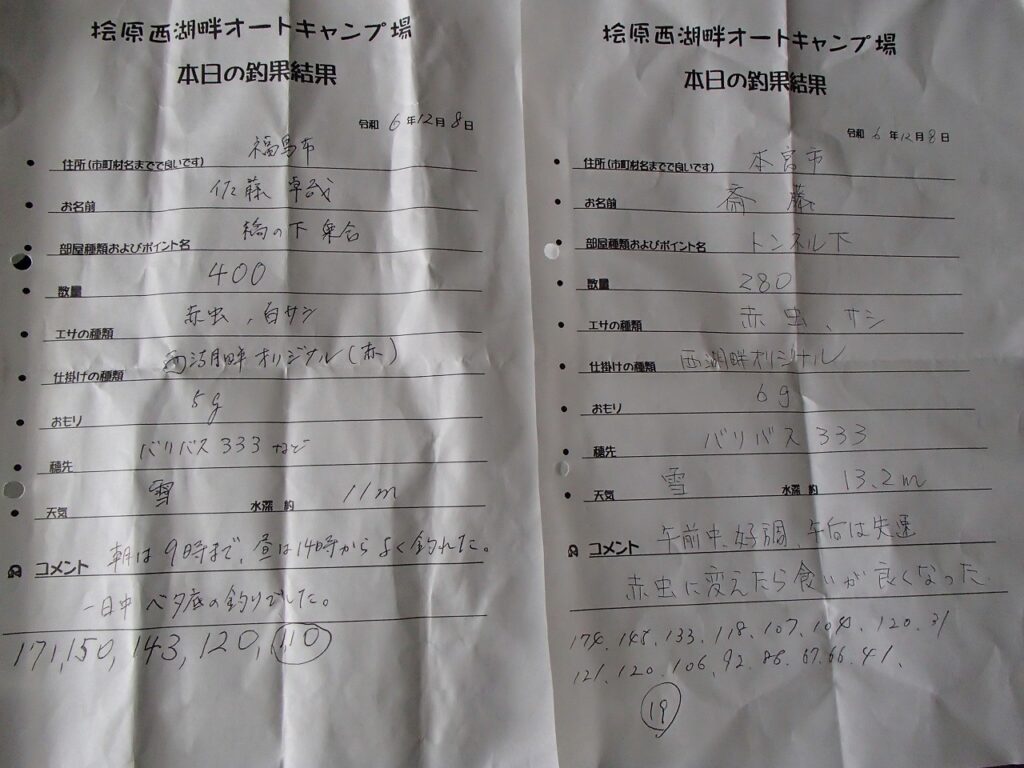 桧原西湖畔オートキャンプ場
本日の釣果結果
令和 6年12月8日
住所(市町村名までで良いです) 福島市
お名前 佐藤 卓哉
部屋種類およびポイント名 橋の下 乗合
数量 400
エサの種類 赤虫、白サシ
仕掛けの種類 西湖畔オリジナル(赤)
おもり 5g
穂先 バリバス333など
天気 雪 水深 約 11m
コメント 朝は9時まで、昼は14時からよく釣れた。
一日中 ベタ底の釣りでした。
171,150,143,120,110
桧原西湖畔オートキャンプ場
本日の釣果結果
令和 6年12月8日
住所(市町村名までで良いです) 本宮市
お名前 斎藤
部屋種類およびポイント名 トンネル下
数量 280
エサの種類 赤虫、サシ
仕掛けの種類 西湖畔オリジナル
おもり 6g
穂先 バリバス333
天気 雪 水深 約 13.2m
コメント 午前中、好調、午后は失速
赤虫に変えたら食いが良くなった
174.145.133.118.107.104.120.31
121.120.106.92.86.67.66.41.
19